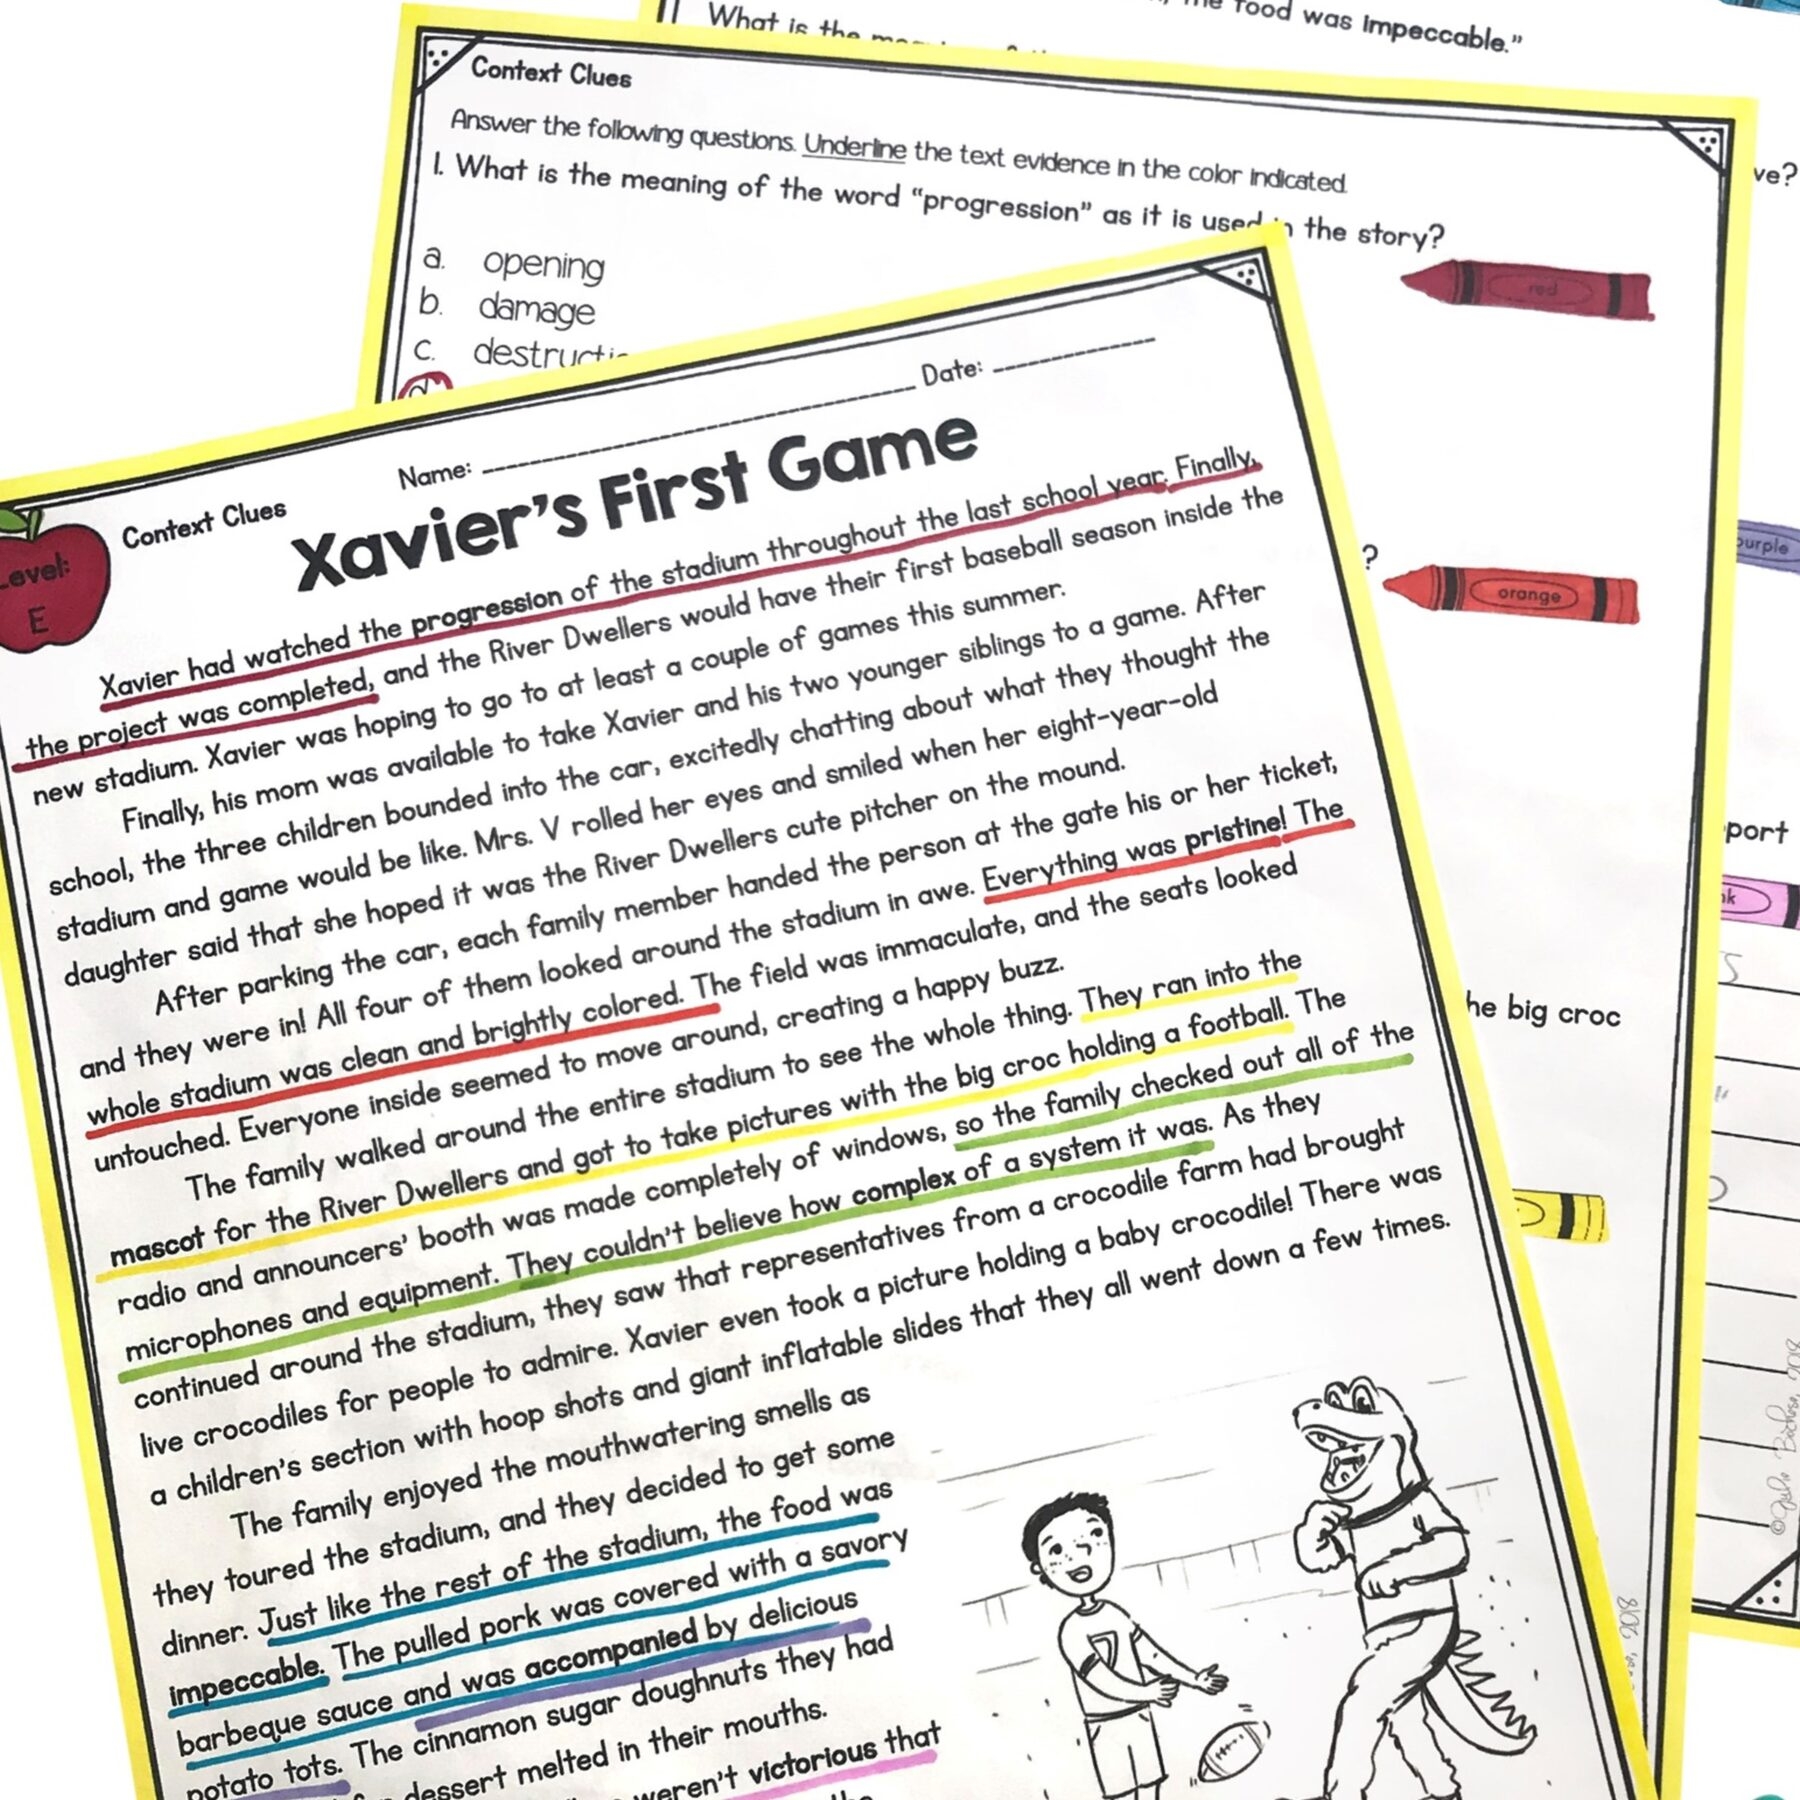 What is the
the food was impeccable."
Context Clues
Answer the following questions. Underline the text evidence in the color indicated.
1. What is the meaning of the word "progression" as it is used in the story?
a. opening
b. damage
c.
red
ve?
?
orange
purple
port
he big croc
Name: Date:
Context Clues
Level:
E
Xavier's First Game
Xavier had watched the progression of the stadium throughout the last school year. Finally,
the project was completed, and the River Dwellers would have their first baseball season inside the
new stadium. Xavier was hoping to go to at least a couple of games this summer.
Finally, his mom was available to take Xavier and his two younger siblings to a game. After
school, the three children bounded into the car, excitedly chatting about what they thought the
stadium and game would be like. Mrs. V rolled her eyes and smiled when her eight-year-old
daughter said that she hoped it was the River Dwellers cute pitcher on the mound.
After parking the car, each family member handed the person at the gate his or her ticket,
and they were in! All four of them looked around the stadium in awe. Everything was pristine! The
whole stadium was clean and brightly colored. The field was immaculate, and the seats looked
untouched. Everyone inside seemed to move around, creating a happy buzz.
The family walked around the entire stadium to see the whole thing. They ran into the
mascot for the River Dwellers and got to take pictures with the big croc holding a football. The
radio and announcers' booth was made completely of windows, so the family checked out all of the
microphones and equipment. They couldn't believe how complex of a system it was. As they
continued around the stadium, they saw that representatives from a crocodile farm had brought
live crocodiles for people to admire. Xavier even took a picture holding a baby crocodile! There was
a children's section with hoop shots and giant inflatable slides that they all went down a few times.
The family enjoyed the mouthwatering smells as
they toured the stadium, and they decided to get some
dinner. Just like the rest of the stadium, the food was
impeccable. The pulled pork was covered with a savory
barbeque sauce and was accompanied by delicious
potato tots. The cinnamon sugar doughnuts they had
dessert melted in their mouths.
weren't victorious that
2018